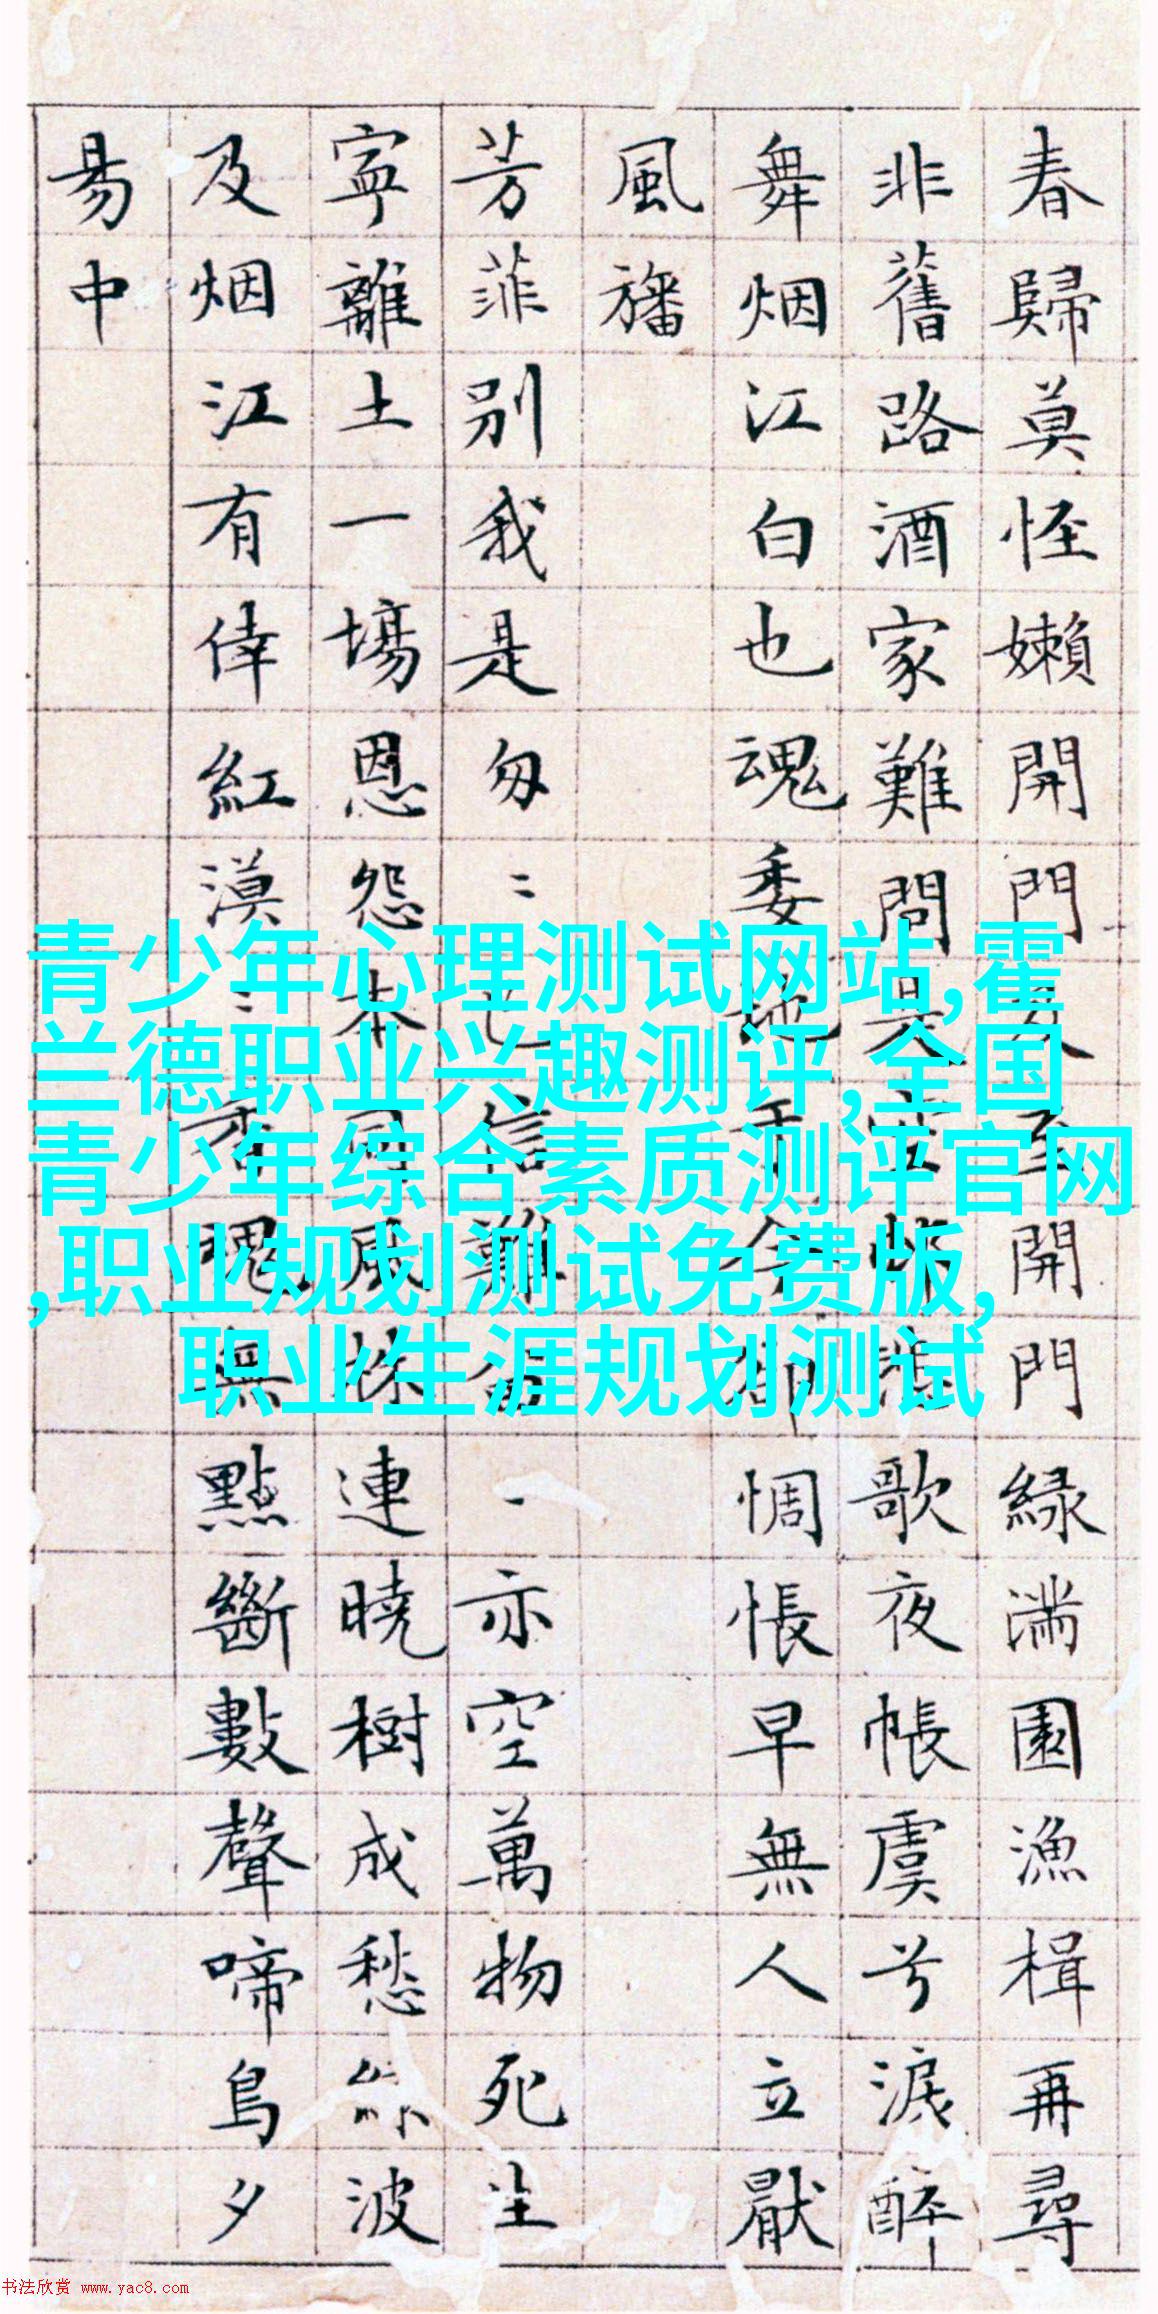 春歸莫怪嬾開門及至開門緑滿園漁楫再尋
非舊路酒家難問是空邨悲歌夜帳虞兮淚醉
舞烟江白也魂委地于今卻惆悵早無人立厭
風旛
芳菲別我是匆〻已信難留一亦空萬物死生
寧離土一場恩怨本同風株連曉樹成愁綠波
及烟江有倖紅漠〻香魂無點斷數聲啼鳥夕
易中
青少年心理测试网站,霍
兰德职业兴趣测评,全国
青少年综合素质测评官网
,职业规划测试免费版,
职业生涯规划测试
书法欣赏 www.yac8.com